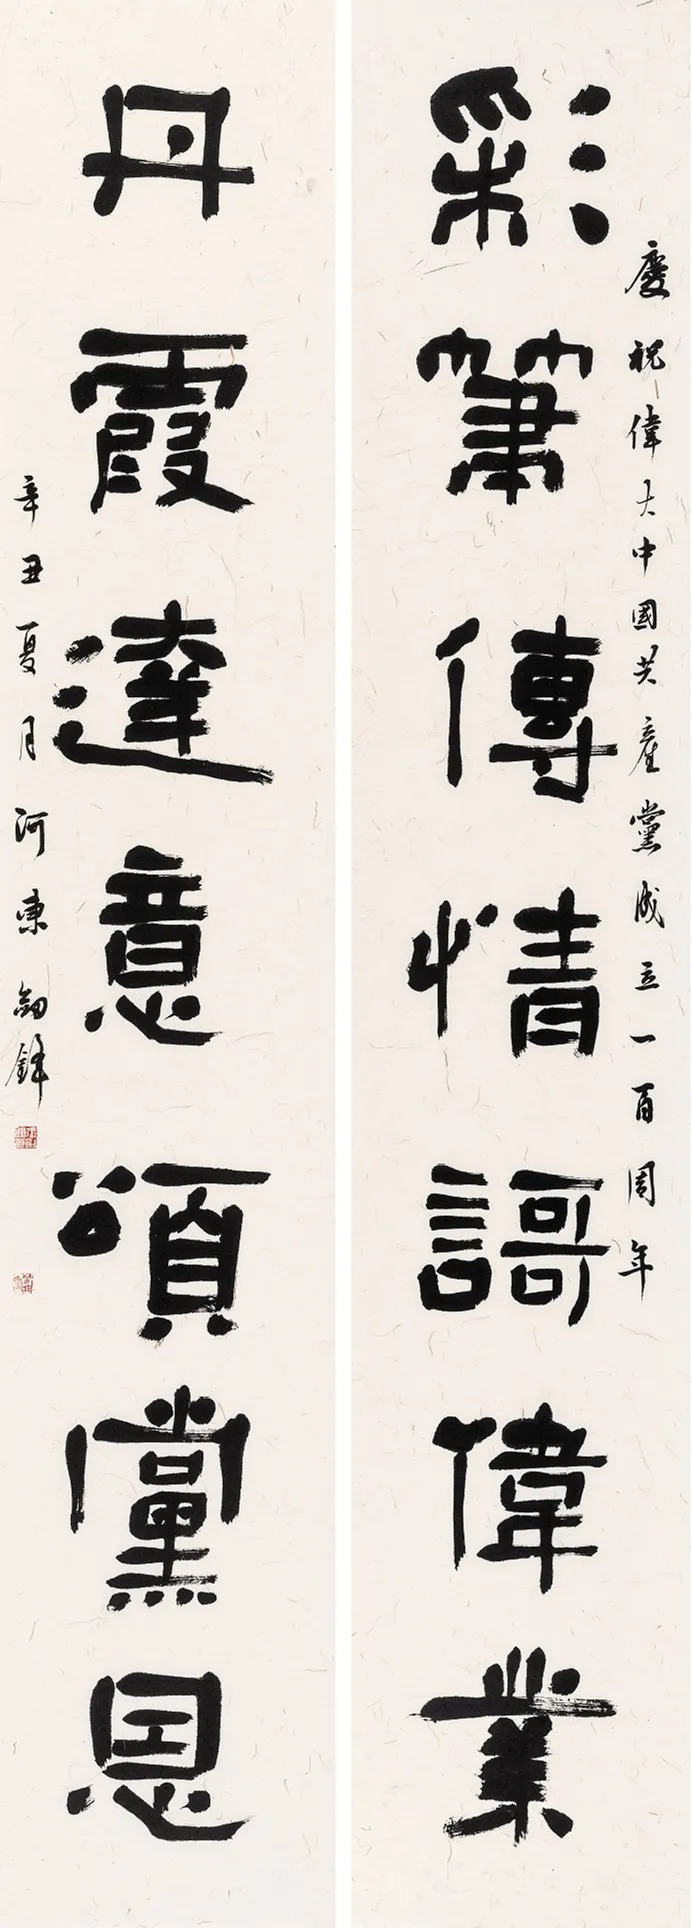 慶祝偉大中國共產黨成立一百周年
彩筆傳情謌偉業
丹霞達意頌黨恩
辛丑夏月河東劍鋒